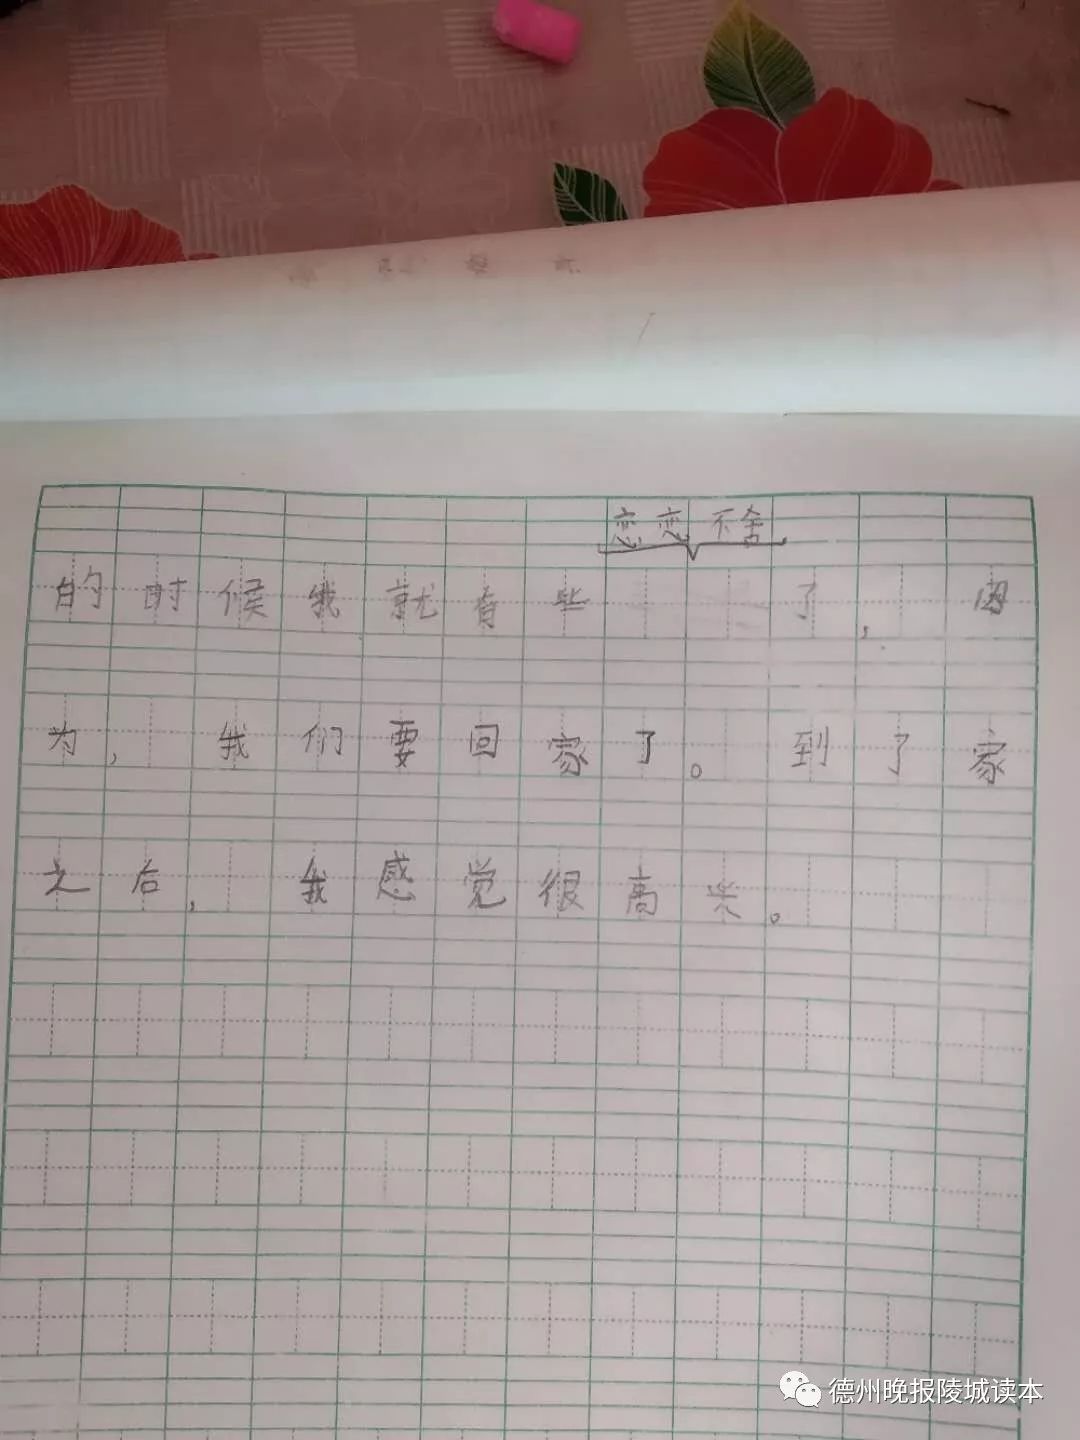 恋恋不舍
的时候我就有些了,因
为,我们要回家了。到了家
之后,我感觉很高兴。
德州晚报陵城读本